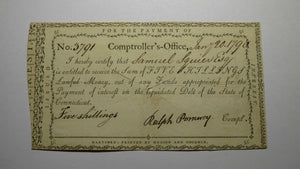 FOR THE PAYMENT OF
No. 3791 Comptroller's-Office, Jany 20 179
I hereby certify that Samuel Squier Esqr
is entitled to receive the Sum of FIVE SHILLINGS
Lawful Money, out of any Funds appropriated for the
Payment of interest on the liquidated Debt of the State of
Connecticut.
Five shillings Ralph Pomeroy Compt.
HARTFORD: PRINTED BY HUDSON AND GOODWIN.